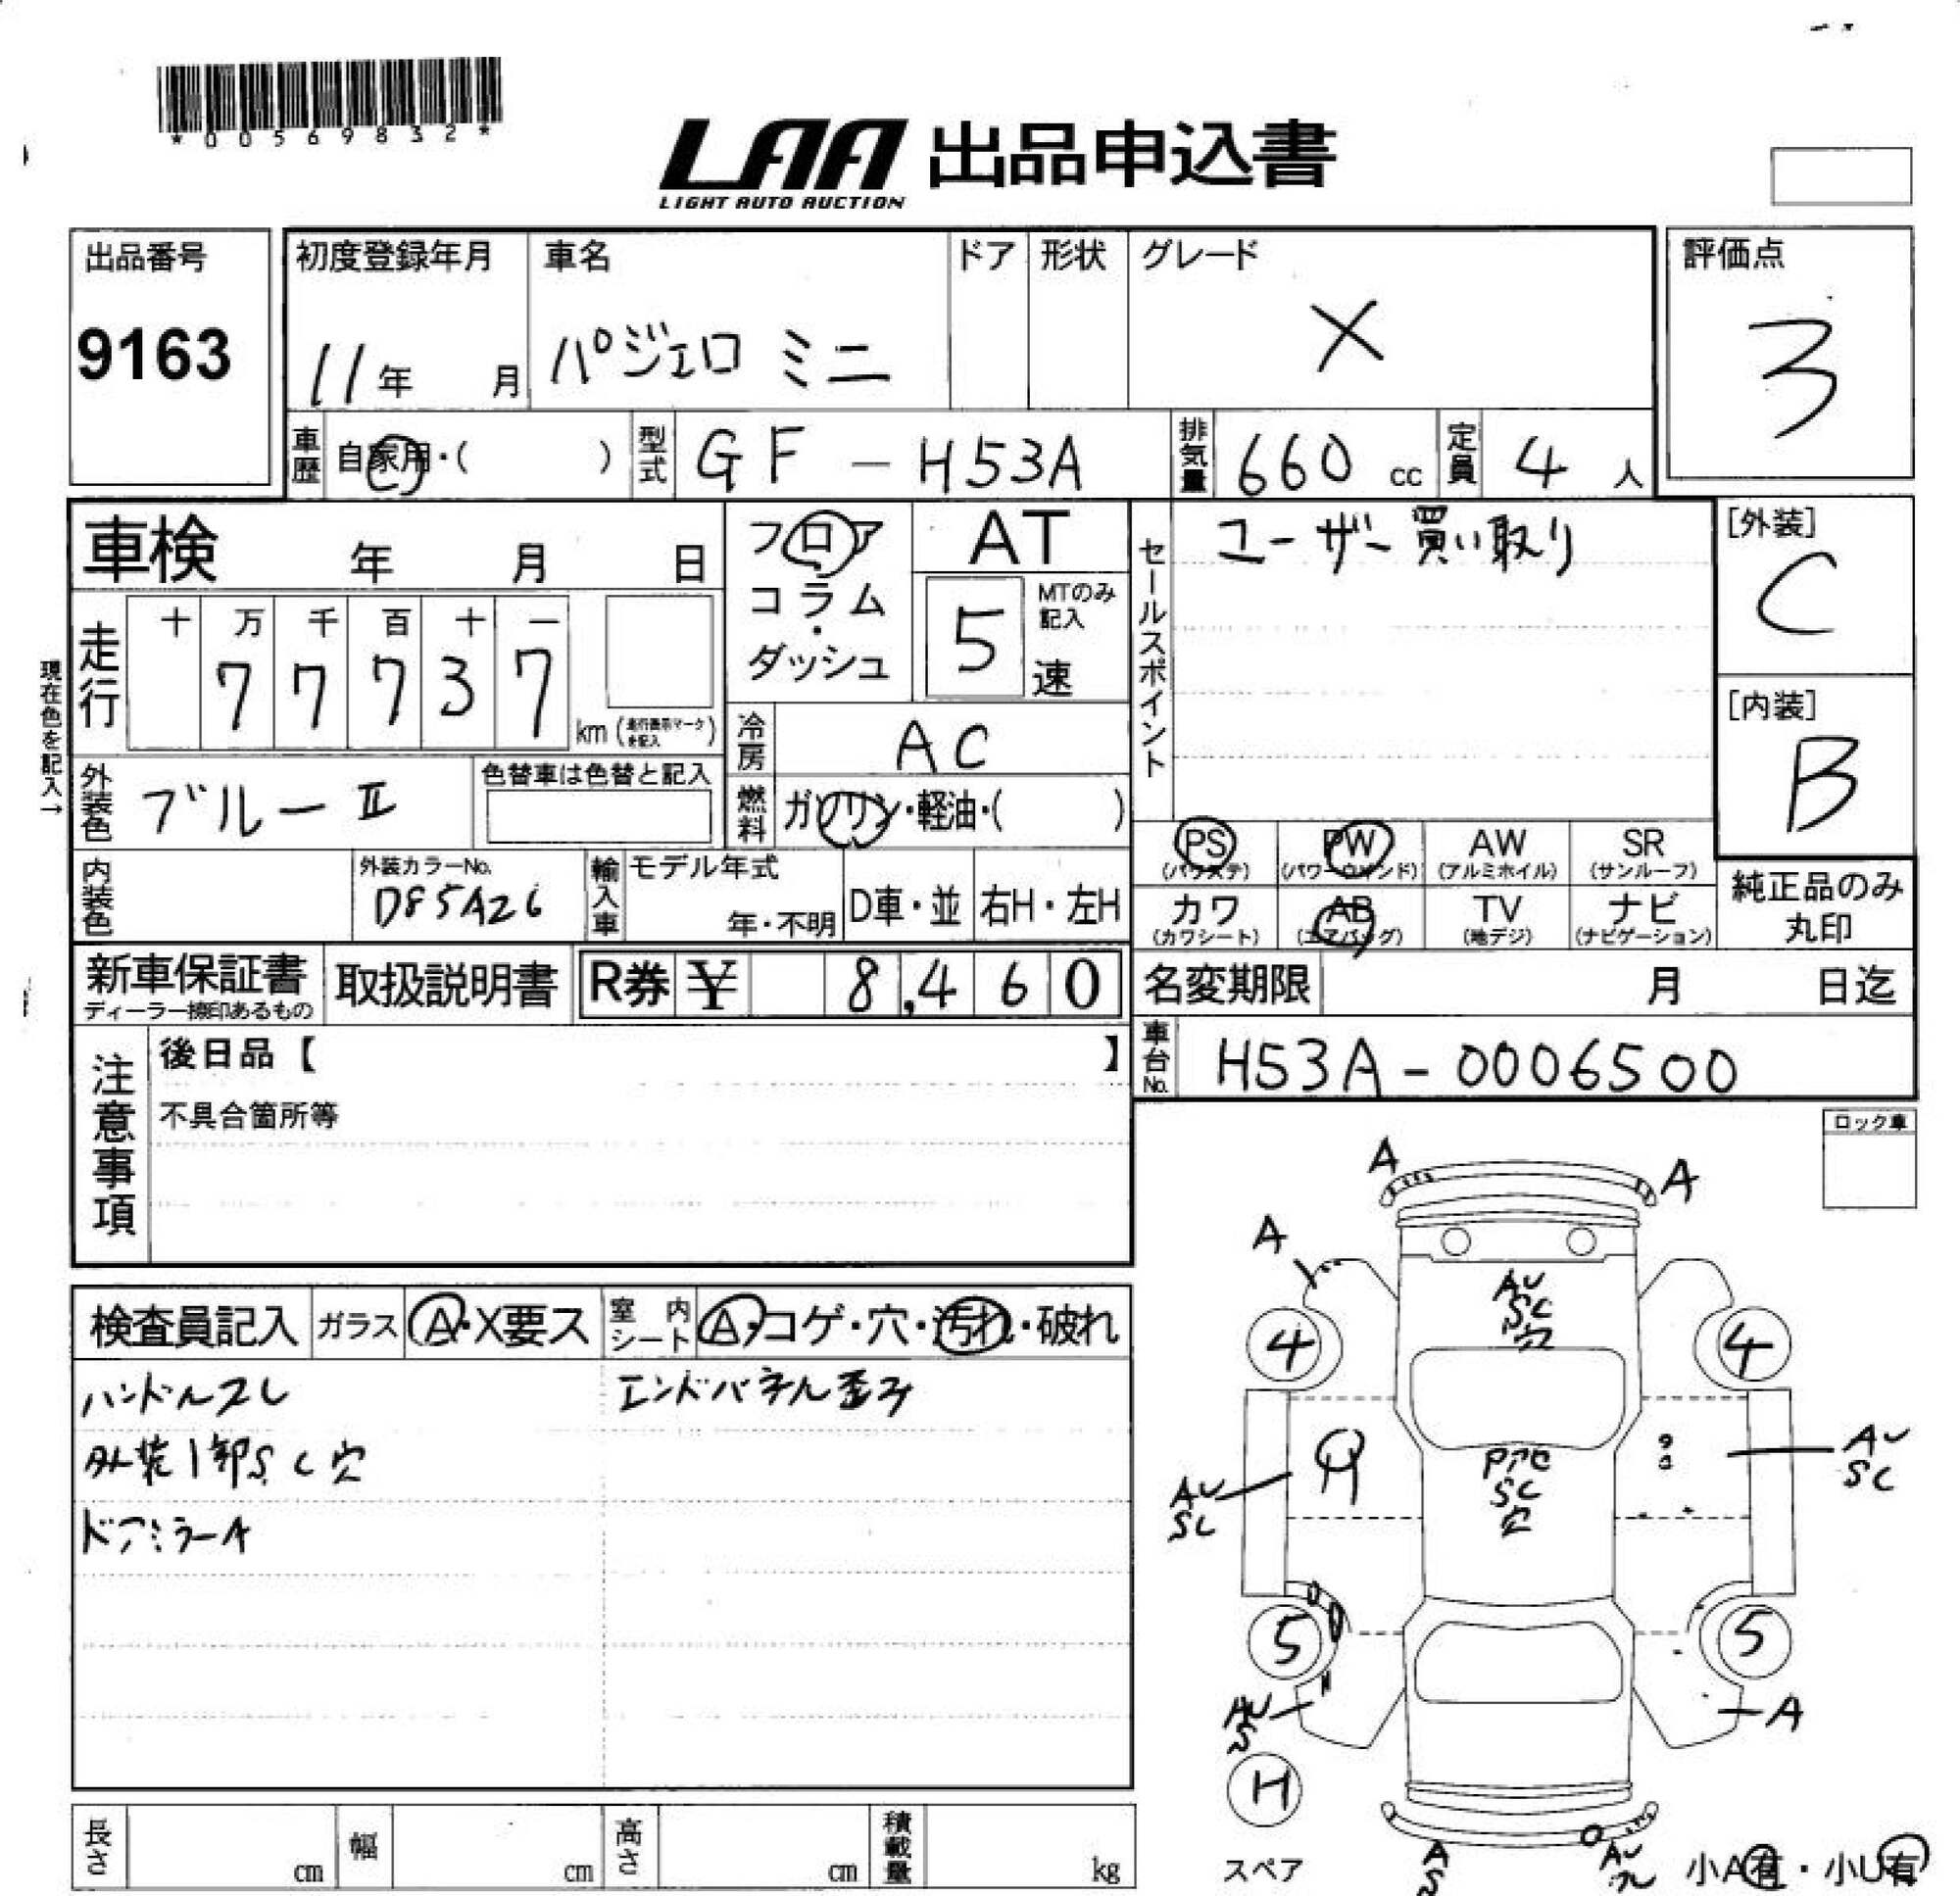 *00569832*
LAA 出品申込書
LIGHT AUTO AUCTION
出品番号
9163
初度登録年月
11年 月
車名
パジェロ ミニ
ドア
形状
グレード
X
評価点
3
車歴 自家用・( )
型式 GF-H53A
排気量 660 cc
定員 4 人
車検 年 月 日
フロア
コラム
・
ダッシュ
AT
5 速
MTのみ
記入
セールスポイント
ユーザー買い取り
[外装]
C
[内装]
B
走行
十 万 千 百 十 一
7 7 7 3 7
km (走行表示マークを記入)
現在色を記入→
冷房 AC
燃料 ガソリン・軽油・( )
外装色 ブルーII
色替車は色替と記入
内装色
外装カラーNo.
D85A26
輸入車
モデル年式
年・不明
D車・並
右H・左H
PS
(パワステ)
PW
(パワーウインド)
AW
(アルミホイル)
SR
(サンルーフ)
カワ
(カワシート)
AB
(エアバッグ)
TV
(地デジ)
ナビ
(ナビゲーション)
純正品のみ
丸印
新車保証書
ディーラー捺印あるもの
取扱説明書
R券 ¥ 8,460
名変期限 月 日迄
車台No. H53A-0006500
注意事項
後日品【 】
不具合箇所等
ロック車
検査員記入
ガラス A・X要ス
室内シート A・コゲ・穴・汚れ・破れ
ハンドルスレ
エンドパネル歪み
外装1部SC穴
ドアミラーA
A
A
A
AU
SC
穴
4
4
AU
SC
SC
穴
AU
SC
5
5
AU
S
A
H
スペア
A
S
AU
小A有・小U有
長さ cm
幅 cm
高さ cm
積載量 kg